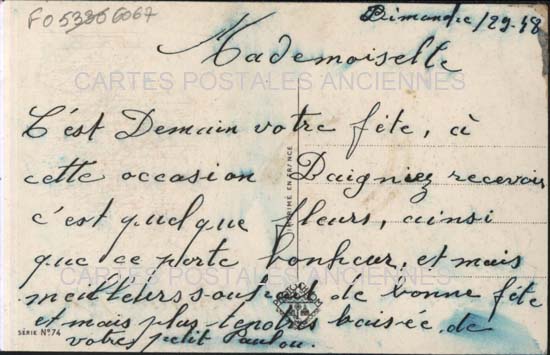 FO 53306 6067
Dimanche / 29-48
Mademoiselle
CARTES POSTALES ANCIENNES
C'ést Demain votre féte, à
cette occasion Daigniez recevoir
c'est quelque fleurs, ainsi
que ce porte bonheur, et mais
CARTES POSTALES ANCIENNES
meilleurs souhait de bonne féte
et mais plus tendres baisée de
votre petit
IMPRIMÉ EN FRANCE
SÉRIE Nº 74